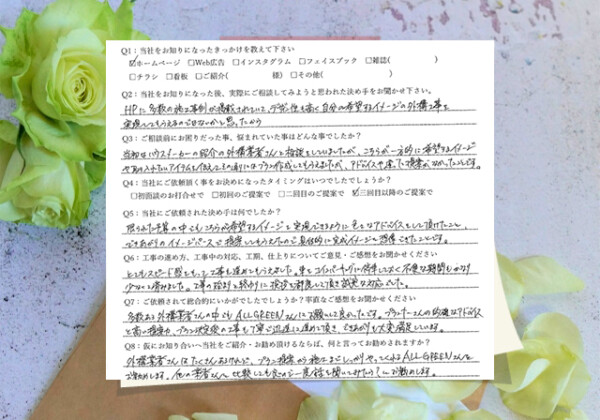 Q1：当社をお知りになったきっかけを教えて下さい
☑ホームページ □Web広告 □インスタグラム □フェイスブック □雑誌( )
□チラシ □看板 □ご紹介( 様) □その他( )
Q2：当社をお知りになった後、実際にご相談してみようと思われた決め手をお聞かせ下さい。
HPに多数の施工事例が掲載されていて、デザイン性も高く自分の希望するイメージの外構工事を
実現してもらえるのではないかと思ったから
Q3：ご相談前にお困りだった事、悩まれていた事はどんな事でしたか？
当初はハウスメーカーの紹介の外構業者さんと相談をしていましたが、こちらが一方的に希望するイメージ
や取り入れたいアイテムを伝えしその通りにはプラン作成してもらえましたが、アドバイスや違った提案がなかったことです。
Q4：当社にご依頼頂く事をお決めになったタイミングはいつでしたでしょうか？
□初面談のお打合せで □初回のご提案で □二回目のご提案で ☑三回目以降のご提案で
Q5：当社にご依頼された決め手は何でしたか？
限られた予算の中でもこちらの希望するイメージを実現できるように色々なアドバイスをして頂けたこと、
できあがりのイメージパースで提案してもらえたので具体的に完成イメージを想像できたことです。
Q6：工事の進め方、工事中の対応、工期、仕上りについてご意見・ご感想をお聞かせください
とてもスピード感をもって工事を進めてもらえました。車をコインパーキングに停車しておく不要な期間もかなり
少なくて済みました。工事の始めと終わりに挨拶を徹底して頂き誠実な対応でした。
Q7：ご依頼されて総合的にいかがでしたでしょうか？率直なご感想をお聞かせください
多数ある外構業者さんの中でもALLGREENさんにお願いして良かったです。プランナーさんの的確なアドバイス
と高い提案力、プラン決定後の工事も丁寧で迅速に進めて頂き、できあがりも大変満足しています。
Q8：仮にお知り合いへ当社をご紹介・お勧め頂けるならば、何と言ってお勧めされますか？
外構業者さんはたくさんあるけれど、プラン提案から施工までしっかりやってくれるALLGREENさんを
お勧めします。他の業者さんと比較しても良いので一度話を聞いてみたら？とお勧めします。